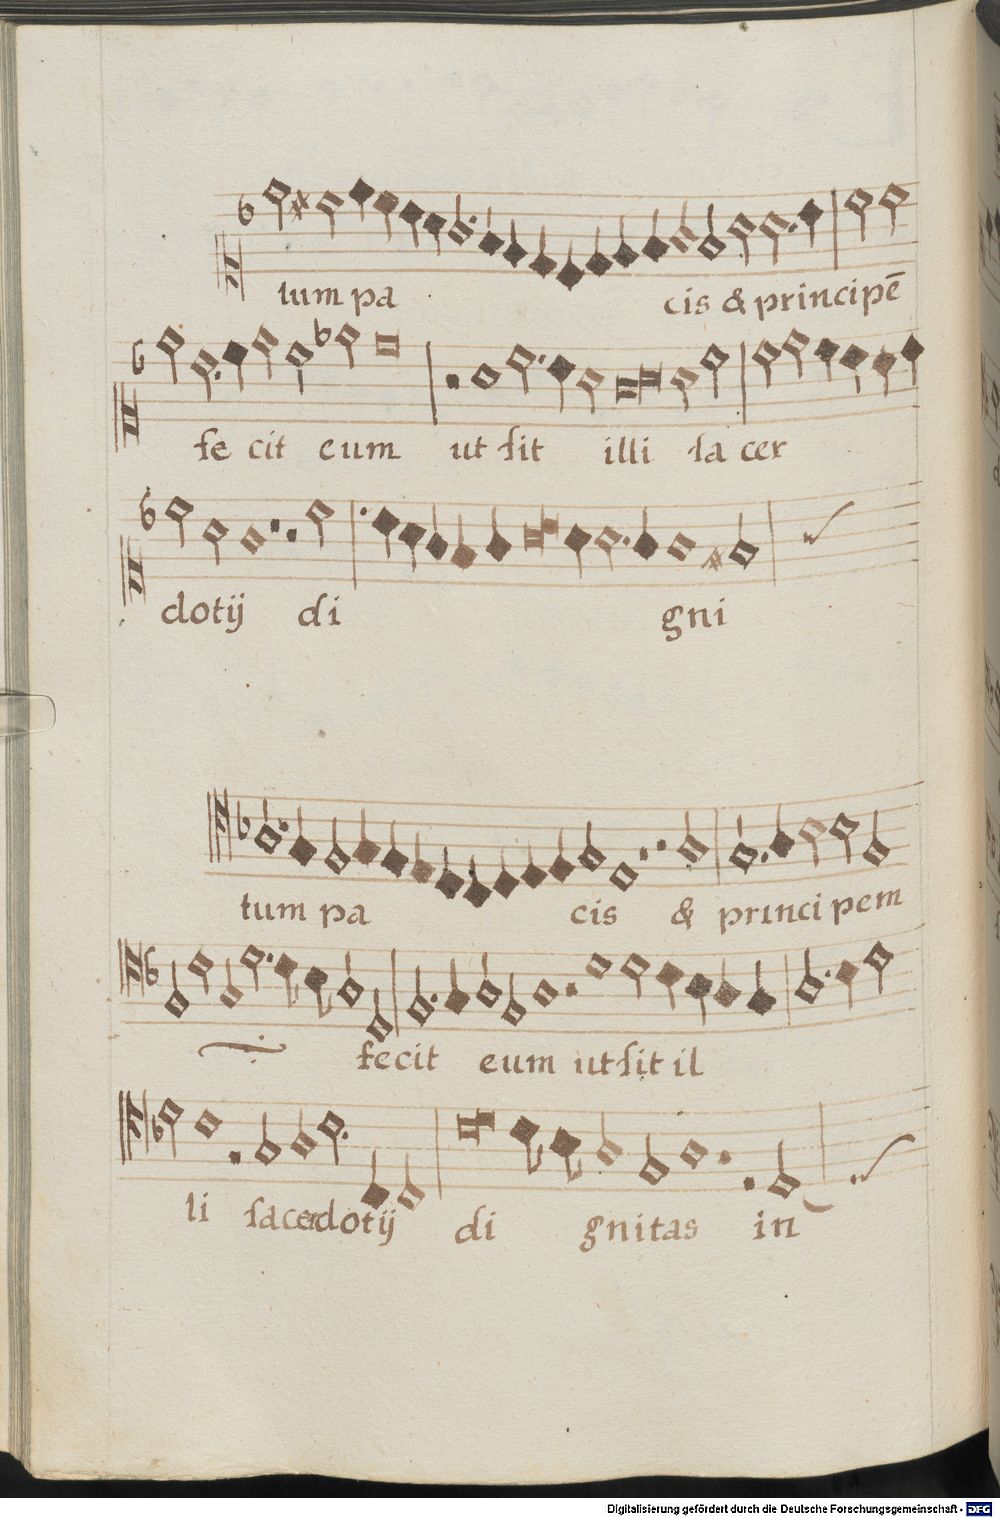 tum pa cis & principē
fe cit eum ut sit illi sa cer
dotij di gni
tum pa cis & principem
fecit eum ut sit il
li sacerdotij di gnitas in
Digitalisierung gefördert durch die Deutsche Forschungsgemeinschaft - DFG